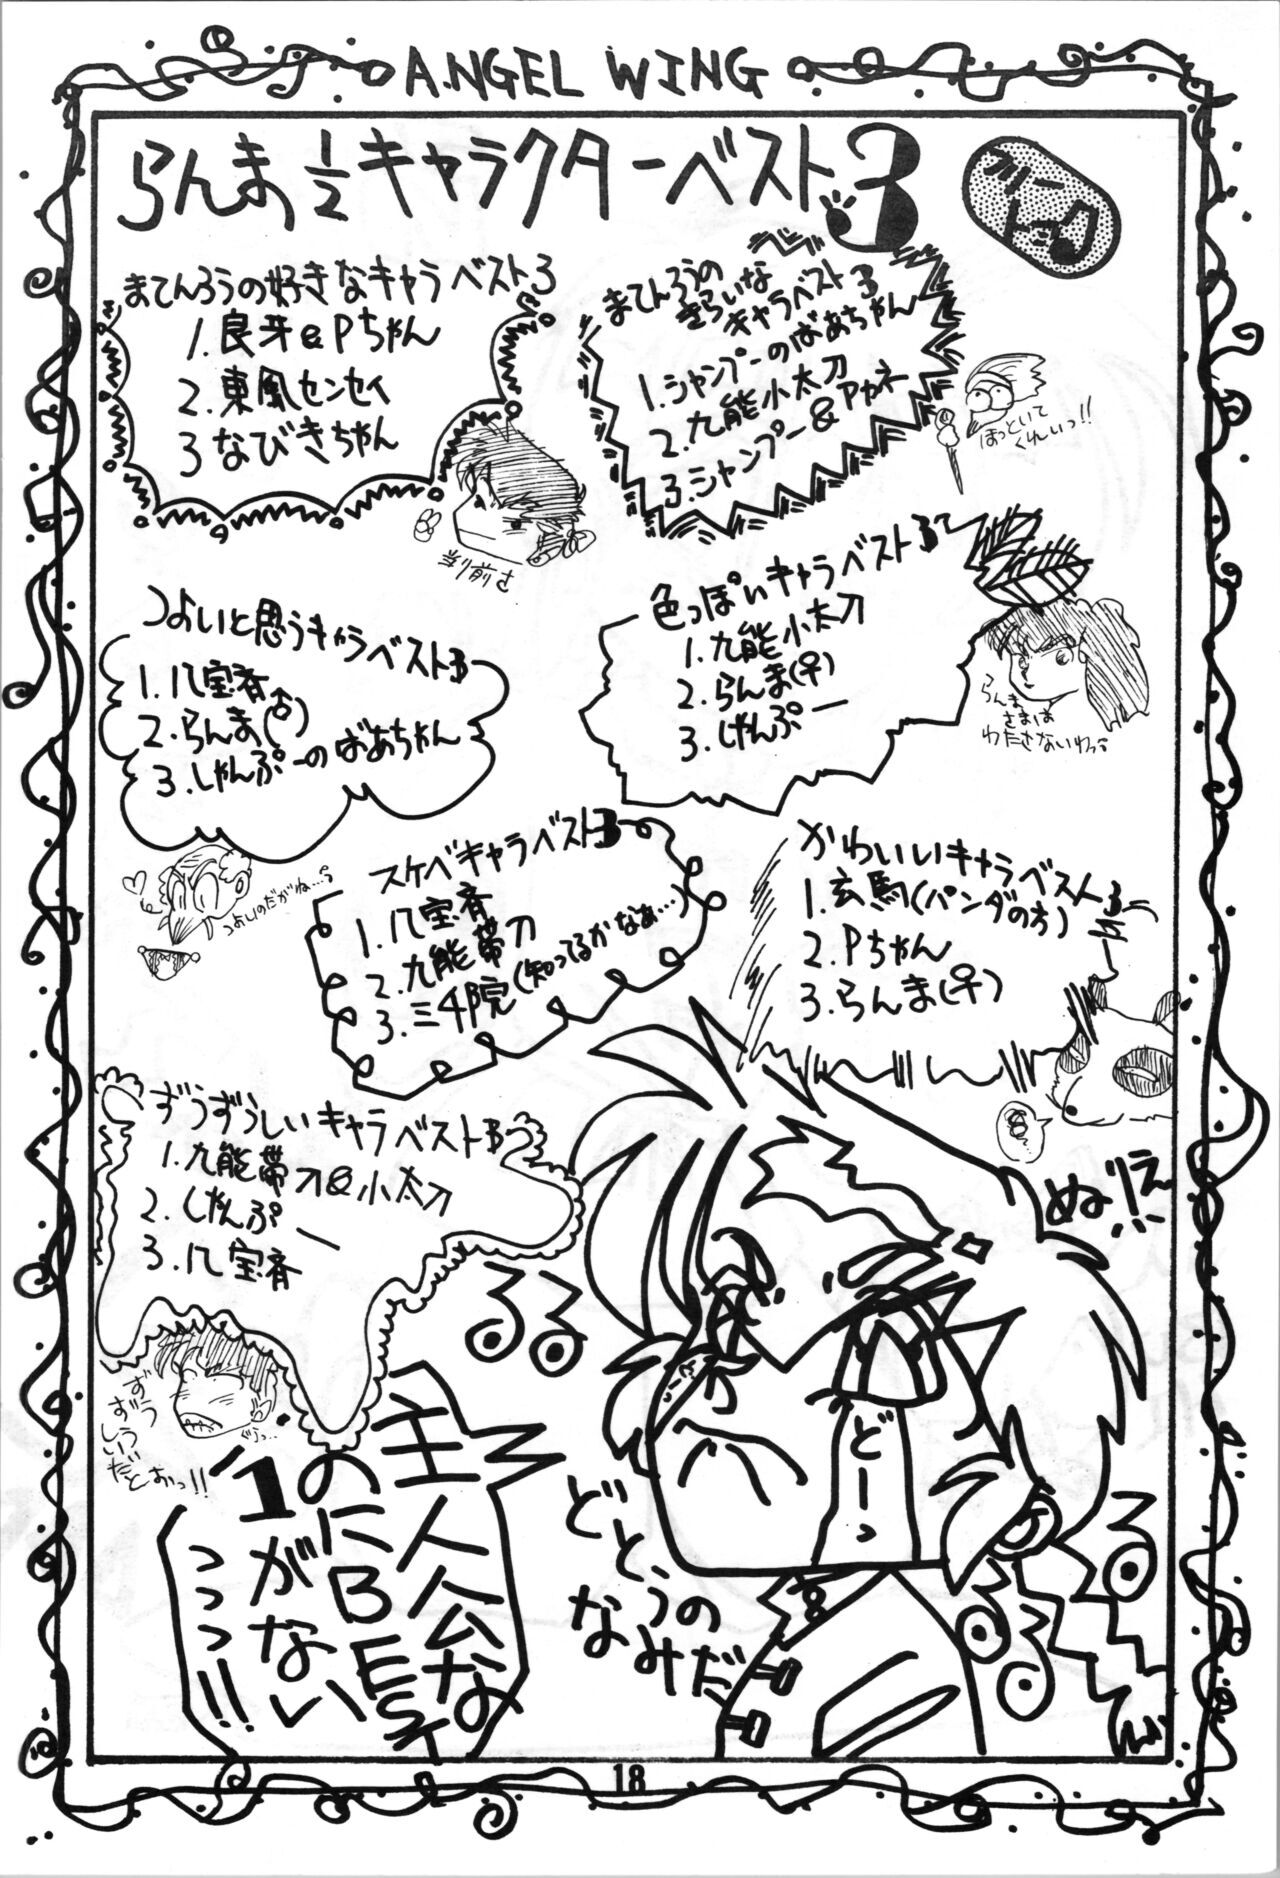 ANGEL WING
らんま1/2キャラクターベスト3
フリートック
まてんろうの好きなキャラベスト3
1.良牙&Pちゃん
2.東風センセイ
3 なびきちゃん
当り前さ
まてんろうの
きらいな
キャラベスト3
1.シャンプーのばあちゃん
2.九能小太刀
3.シャンプー&アカネ
ほっといて
くれいっ!!
つよいと思うキャラベスト3
1.八宝斉
2.らんま(♂)
3.しゃんぷーのばあちゃん
つよいのだがね…
色っぽいキャラベスト3
1.九能小太刀
2.らんま(♀)
3.しゃんぷー
らんま
さまは
わたさないわっ
スケベキャラベスト3
1.八宝斉
2.九能帯刀
3.三千院(知ってるかなぁ…)
かわいいキャラベスト3
1.玄馬(パンダの方)
2.Pちゃん
3.らんま(♀)
ずうずうしいキャラベスト3
1.九能帯刀&小太刀
2.しゃんぷー
3.八宝斉
ずう
ずう
しい
だとおっ!!
ぐらっ…
ぬりえ!!
るる
どーっ
るるる
どとうの
なみだ
主人公な
のにBEST
1がない
っっっ!!
18